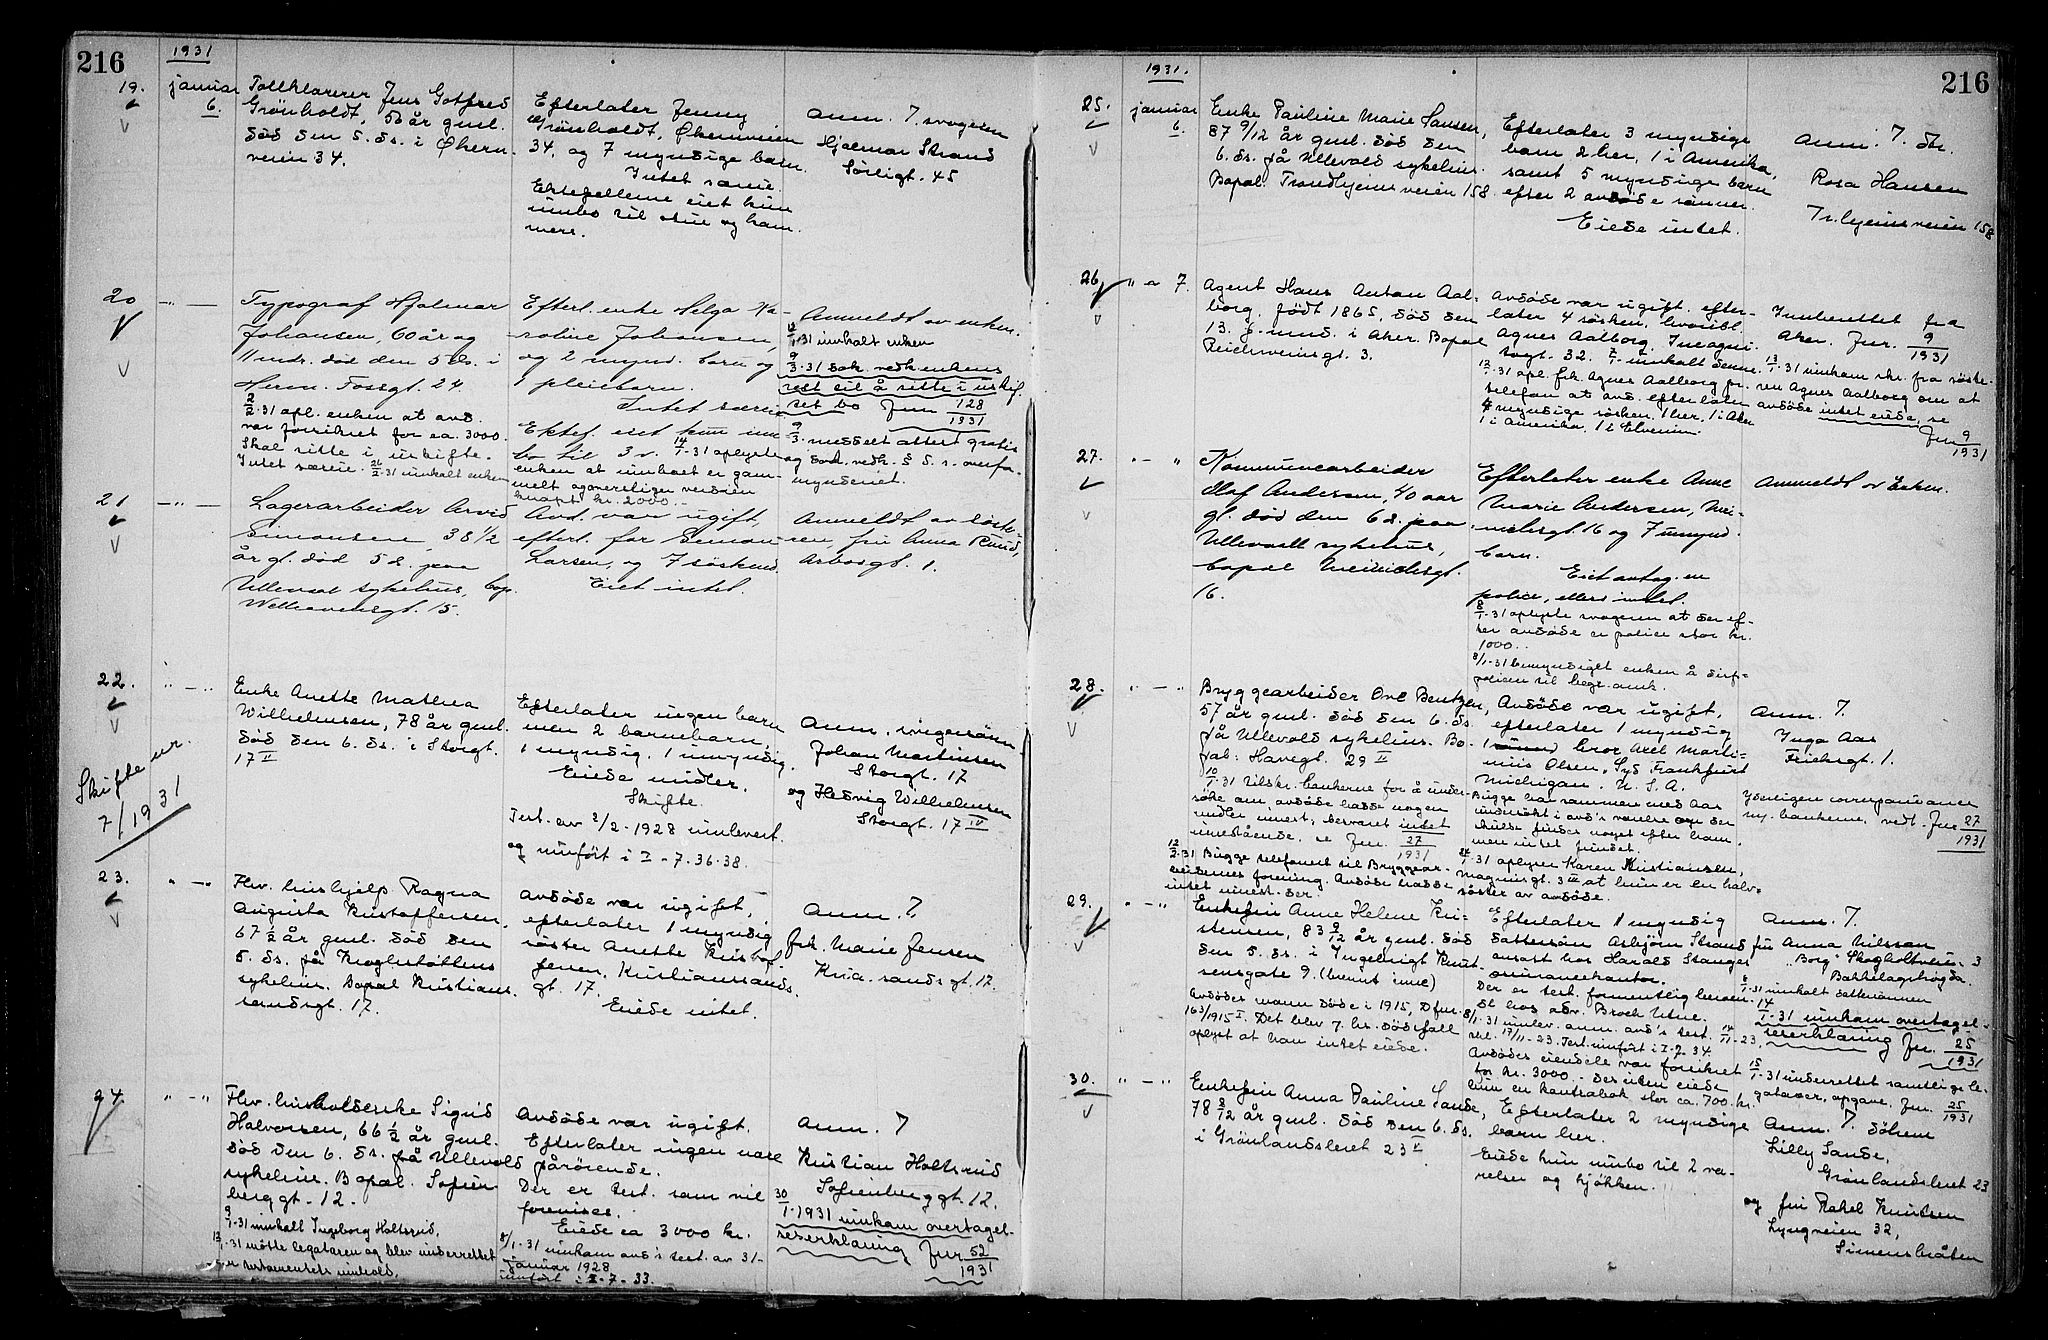 216
1931
19.
januar
6.
Tollklarerer Jens Gotfred
Grönholdt, 50 år gml.
död den 5. ds. i Økern-
veien 34.
Efterlater Jenny
Grönholdt, Økernveien
34, og 7 myndige barn.
Intet særeie.
Ektefellene eiet kun
innbo til stue og kam-
mers.
Anm. 7. svogeren
Hjalmar Strand
Sörligt. 45
20
Typograf Hjalmar
Johansen, 60 år og
11 mdr. död den 5 ds. i
Herm. Fossgt. 24.
2/2-31 opl. enken at avd.
var forsikret for ca. 3000.
Skal sitte i uskifte.
Intet særeie. 21/2-31 innkalt enken
Efterl. enke Helga Ka-
roline Johansen,
og 2 mynd. barn og
1 pleiebarn.
Intet særeie
Ektef. eiet kun inn
bo til 3 v. 14/1-31 oplyste
enken at innboet er gam-
melt og neppe verdien
knapt kr. 2000.
Anmeldt av enken.
31 innkalt enken
9/3-31 dok. vedk. enkens
rett til å sitte i uskif-
tet bo Jnr 128/1931
9/3. meddelt attest gratis
og dok. vedk. § 5. s. overfo-
mynderiet.
21
Lagerarbeider Arvid
Simonsen, 38 1/2
år gl. död 5 d. paa
Ullevål sykehus, bop.
Welhavensgt. 15.
Avd. var ugift,
efterl. far Simon
Larsen, og 7 söskend.
Eiet intet.
Anmeldt av söste-
ren, fru Anna Ruud,
Arbosgt. 1.
22.
Enke Anette Mathea
Wilhelmsen, 78 år gml.
död den 6. ds. i Storgt.
17 II
Skifte nr.
7/1931
Efterlater ingen barn
men 2 barnebarn
1 myndig, 1 umyndig.
Eiede midler.
Skifte.
Test. av 2/2-1928 innlevert.
og innfört i I-7.36-38.
Anm. svigersönn
Johan Martinsen
Storgt. 17
og Hedvig Wilhelmsen
Storgt. 17 IV
23.
Fhv. hushjelp Ragna
Augusta Kristoffersen,
67 1/2 år gml. död den
5. ds. på Krohgstöttens
sykehus. Bopal Kristians.
sandsgt. 17.
Avdöde var ugift,
efterlater 1 myndig
söster Anette Kristof.
fersen, Kristiansands.
gt. 17.
Eiede intet.
Anm. 7.
frk. Marie Jensen
Kria. sands gt. 17.
24.
Fhv. husholderske Sigrid
Halvorsen, 66 1/2 år gml.
död den 6. ds. på Ullevåls
sykehus. Bopal. Sofien
berggt. 12.
9/1-31 innkalt Ingeborg Holtsrud.
13/1-31 mötte legataren og blev underrettet
om testamentets innhold.
Avdöde var ugift.
Efterlater ingen nære
pårörende.
Der er test. som vil
foreises.
Eiede ca 3000 kr.
8/1-31 innkom avd's test. av 31-
januar 1928
innfört i I-7-33.
Anm. 7
Kristian Holtsrud
Sofienberggt. 12.
30/1-1931 innkom overtagel-
seserklæring Jnr 52/1931
216
1931.
25.
januar
6.
Enke Pauline Marie Hansen,
87 9/12 år gml. död den
6. ds. på Ullevåls sykehus.
Bopal: Trondhjemsveien 158.
Efterlater 3 myndige
barn 2 her, 1 i Amerika,
samt 5 myndige barn
efter 2 avdöde sönner.
Eiede intet.
Anm. 7. dtr.
Rosa Hansen
Tr.hjemsveien 158
26.
7.
Agent Hans Anton Aal-
borg, födt 1865, död den
13. f. mnd. i Aker. Bopal
Reichweinsgt. 3.
Avdöde var ugift. efter-
later 4 sösken, hvoribl.
Agnes Aalborg, Incogni-
togt. 32. 7/1-innkalt denne.
12/1-31 opl. frk. Agnes Aalborg pr.
telefon at avd. efterlater
4 myndige sösken, 1 her, 1 i Aker
1 i Amerika, 1 i Elverum.
Innberettet fra
Aker. Jnr. 9/1931
13/1-31 innkom skr. fra söste-
ren Agnes Aalborg om at
avdöde intet eiede, se
Jnr 9/1931
27.
Kommunearbeider
Olaf Andersen, 40 aar
gl. död den 6 d. paa
Ullevaall sykehus,
bopal Meinichsgt.
16.
Efterlater enke Anne
Marie Andersen, Mei-
nichsgt. 16 og 7 umynd.
barn.
Eiet antag. en
police, ellers intet.
8/1-31 oplyste svogeren at der ef-
ter avdöde er police stor kr.
1000..
8/1-31 bemyndiget enken å disp.
policen til begr. omk.
Anmeldt av Enken.
28.
Bryggearbeider Ove Bentzen,
57 år gml. död den 6. ds.
på Ullevåls sykehus. Bo-
pal: Havegt. 29 II
10/1-31 tilskr. bankerne for å under-
söke om avdöde hadde nogen
midler innest; besvaret intet
innestående. se Jnr. 27/1931
12/2-31 Bugge telefonert til Bryggear-
beidernes forening. Avdöde hadde
intet innest. der.
Avdöde var ugift,
efterlater 1 myndig
bror Axel Marti-
nius Olsen, Syd Frankfurt
Michigan, U. S. A.
Bugge har sammen med Aas
undersökt i avd's værelse om der
skulde findes noget efter ham,
men intet fundet.
24/1-31 oplyser Karen Kristiansen,
Magnusgt. 3 III at hun er en halv-
söster av avdöde.
Anm. 7.
Inga Aas
Friisgt. 1.
Ytterligere correspondance
m. bankene, vedl. Jnr 27/1931
29.
Enkefru Anne Helene Kri-
stensen, 83 9/12 år gml. död
den 5. ds. i Ingelbrigt Knut-
sensgate 9. (bennt inne)
Avdödes mann döde i 1915, D fnr.
163/1915 I. Det blev 7. hs. dödsfall
oplyst at han intet eiede.
Efterlater 1 myndig
dattersön Asbjörn Strand
ansatt hos Harald Stanges
ordinancekontor.
Der er test. formentlig beroen-
de hos adv. Broch Utne.
8/1-31 innlev. anm. avd's test. 14/11-23,
kod. 17/11-23. Test. innfört i I-7-34.
Avdödes eiendele var forsikret
for kr. 3000.- Desuten eiede
hun en kontrabok stor ca. 700. kr.
Anm. 7.
fru Anna Nilsson
"Borg" Skogholtvei 3
Bakkelagshögda.
8/1-31 innkalt dattersönnen
14/1-31 innkom overtagel-
seserklæring Jnr. 25/1931
15/1-31 underrettet samtlige le-
gatarer, opgave, Jnr. 25/1931
30.
Enkefru Anna Pauline Sande,
78 8/12 år gml. död den 6. ds.
i Grönlandsleret 23 II
Efterlater 2 myndige
barn her.
Eiede kun innbo til 2 væ-
relser og kjökken.
Anm. 7. döttrene
Lilly Sande,
Grönlandsleret 23
og fru Rakel Knutsen
Lyngveien 32,
Simensbråten